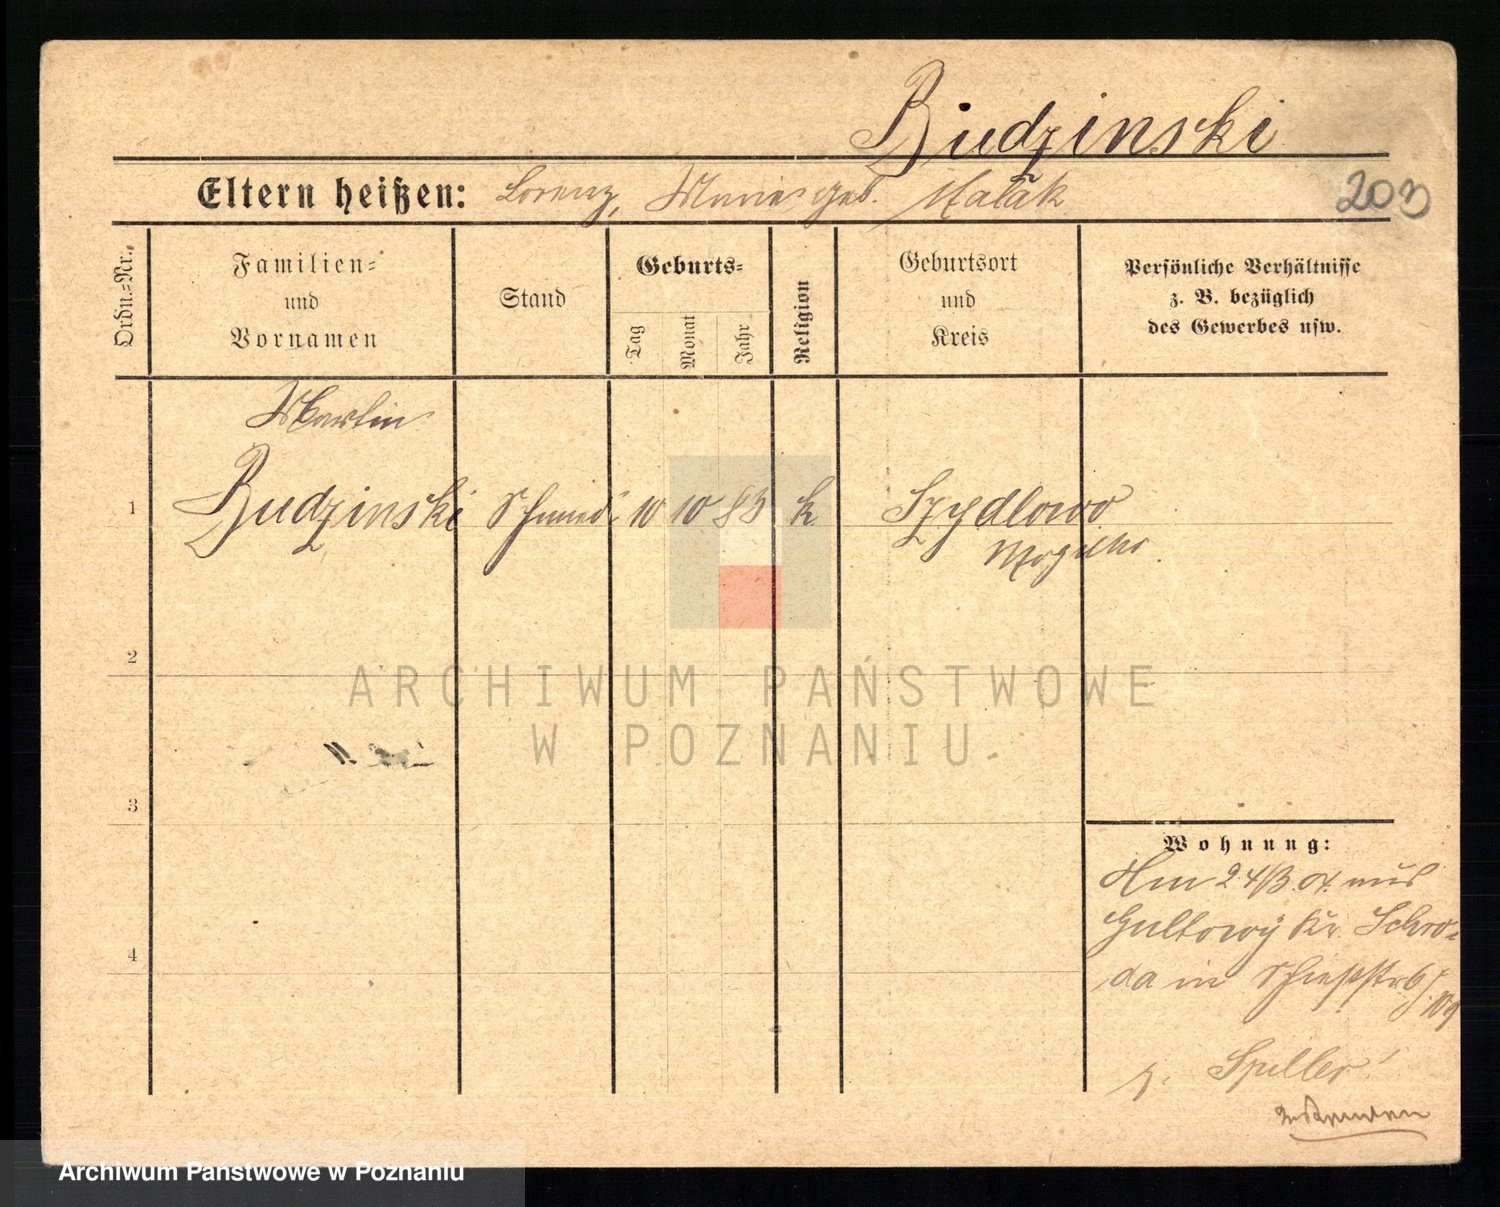 Budzinski
Eltern heißen: Lorenz, Marie geb. Malak
203
Ordn.-Nr.
Familien-
und
Vornamen
Stand
Geburts-
Tag
Monat
Jahr
Religion
Geburtsort
und
Kreis
Persönliche Verhältnisse
z. B. bezüglich
des Gewerbes usw.
Martin
1 Budzinski Schmied 10 10 83 k Szydlowo
Mogilno.
2
ARCHIWUM PAŃSTWOWE
W POZNANIU
3
Wohnung:
Am 24/3.04. aus
Gultowy Kr. Schro-
da in
4
Spiller
Archiwum Panstwowe w Poznaniu